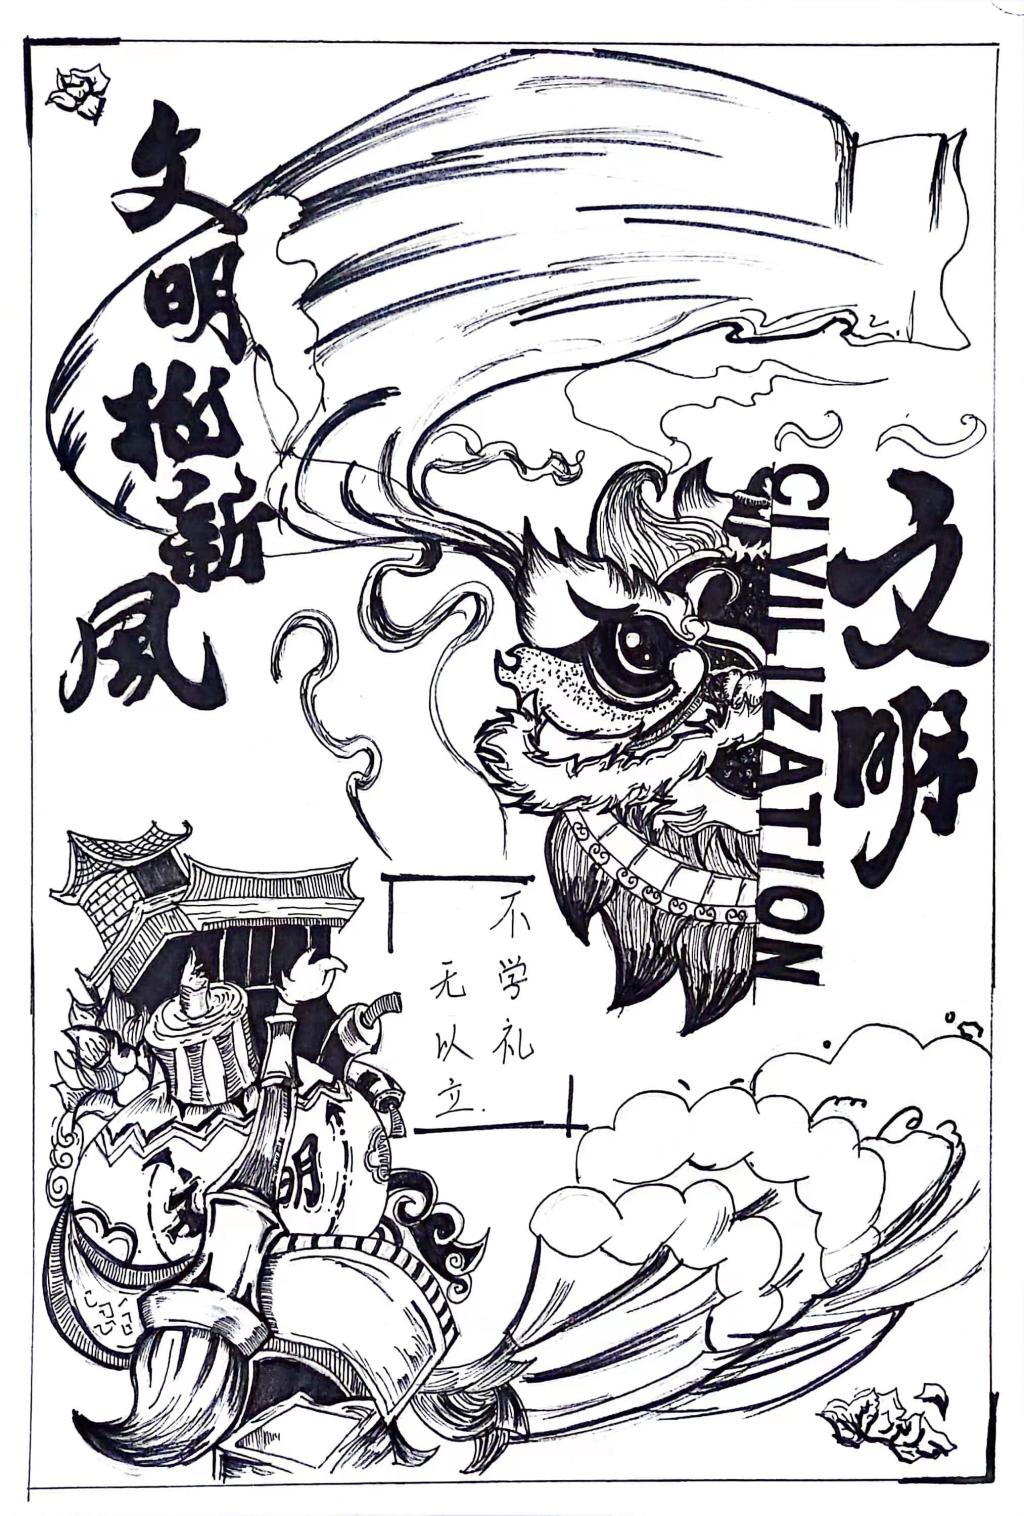 文明推新风
文明
CIVILIZATION
不学礼
无以立.
文明